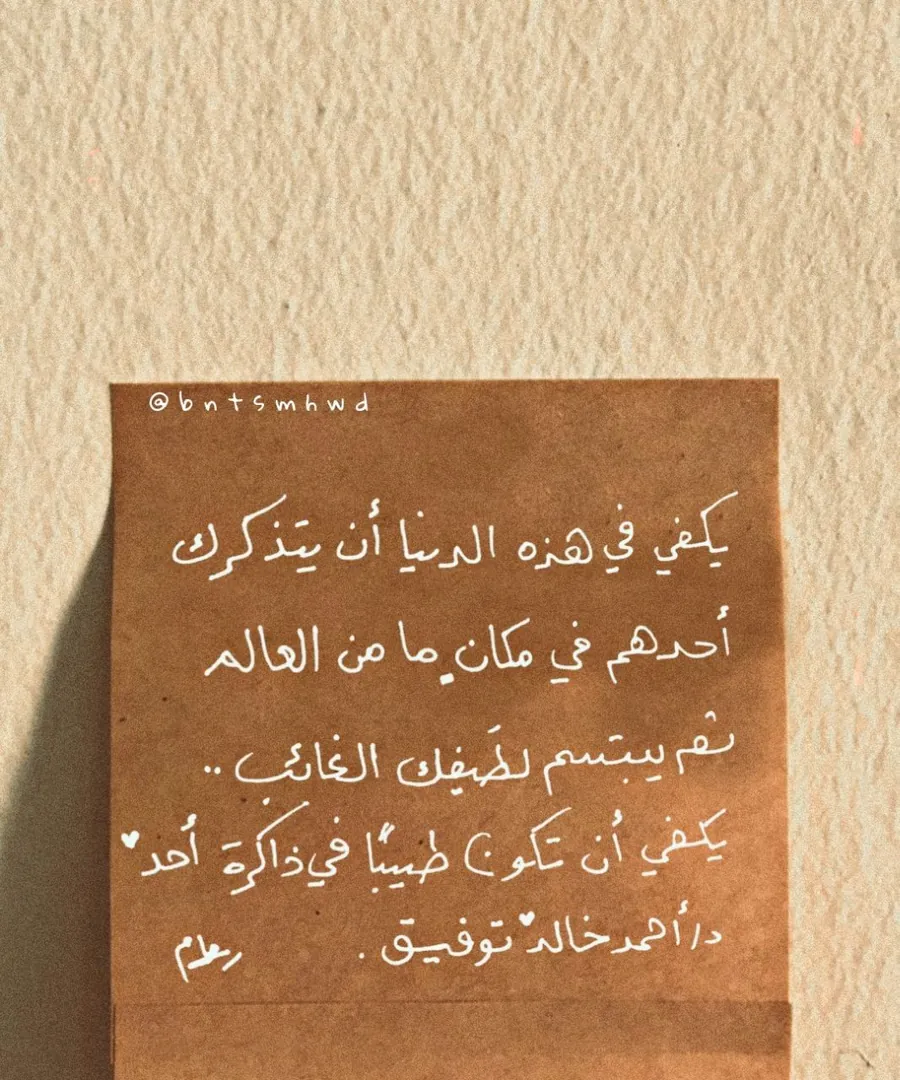 @bntsmhwd
يكفي في هذه الدنيا أن يتذكرك
أحدهم في مكانٍ ما من العالم
ثم يبتسم لطَيفك الغائب ..
يكفي أن تكون طيبًا في ذاكرة أحد
د/أحمد خالد توفيق .